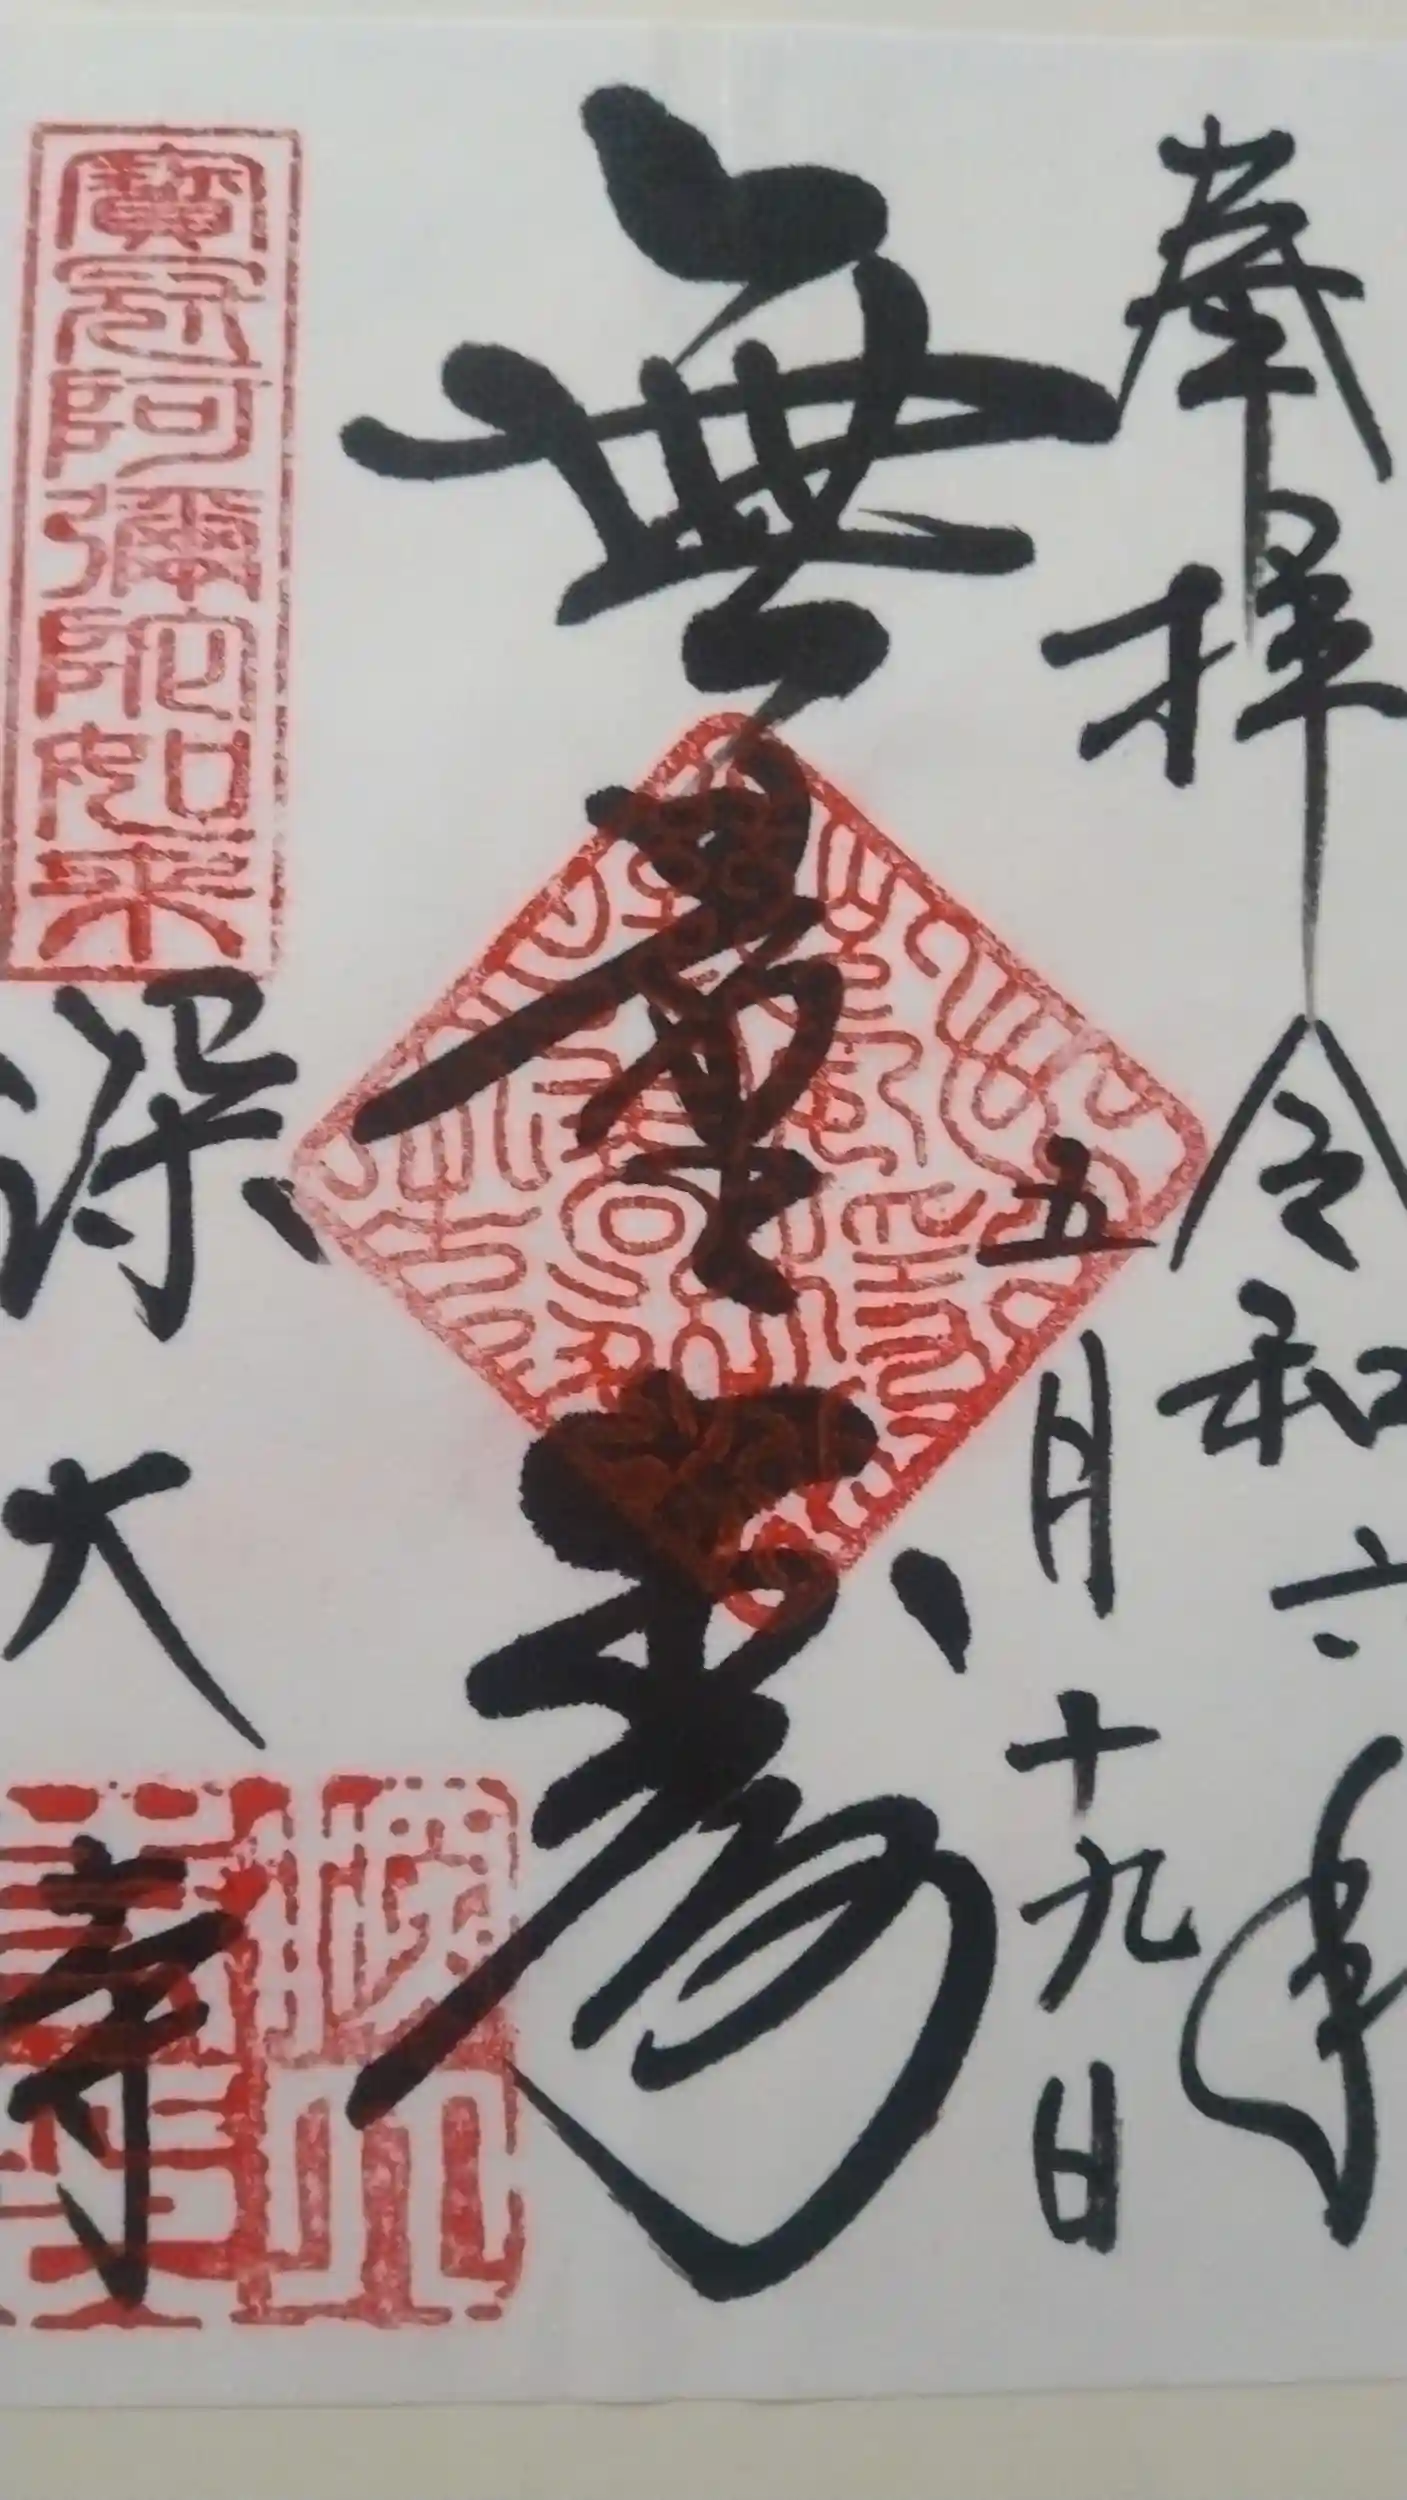 奉拝 令和六年
五月十九日
無量壽
寶冠阿彌陀如来
深大寺